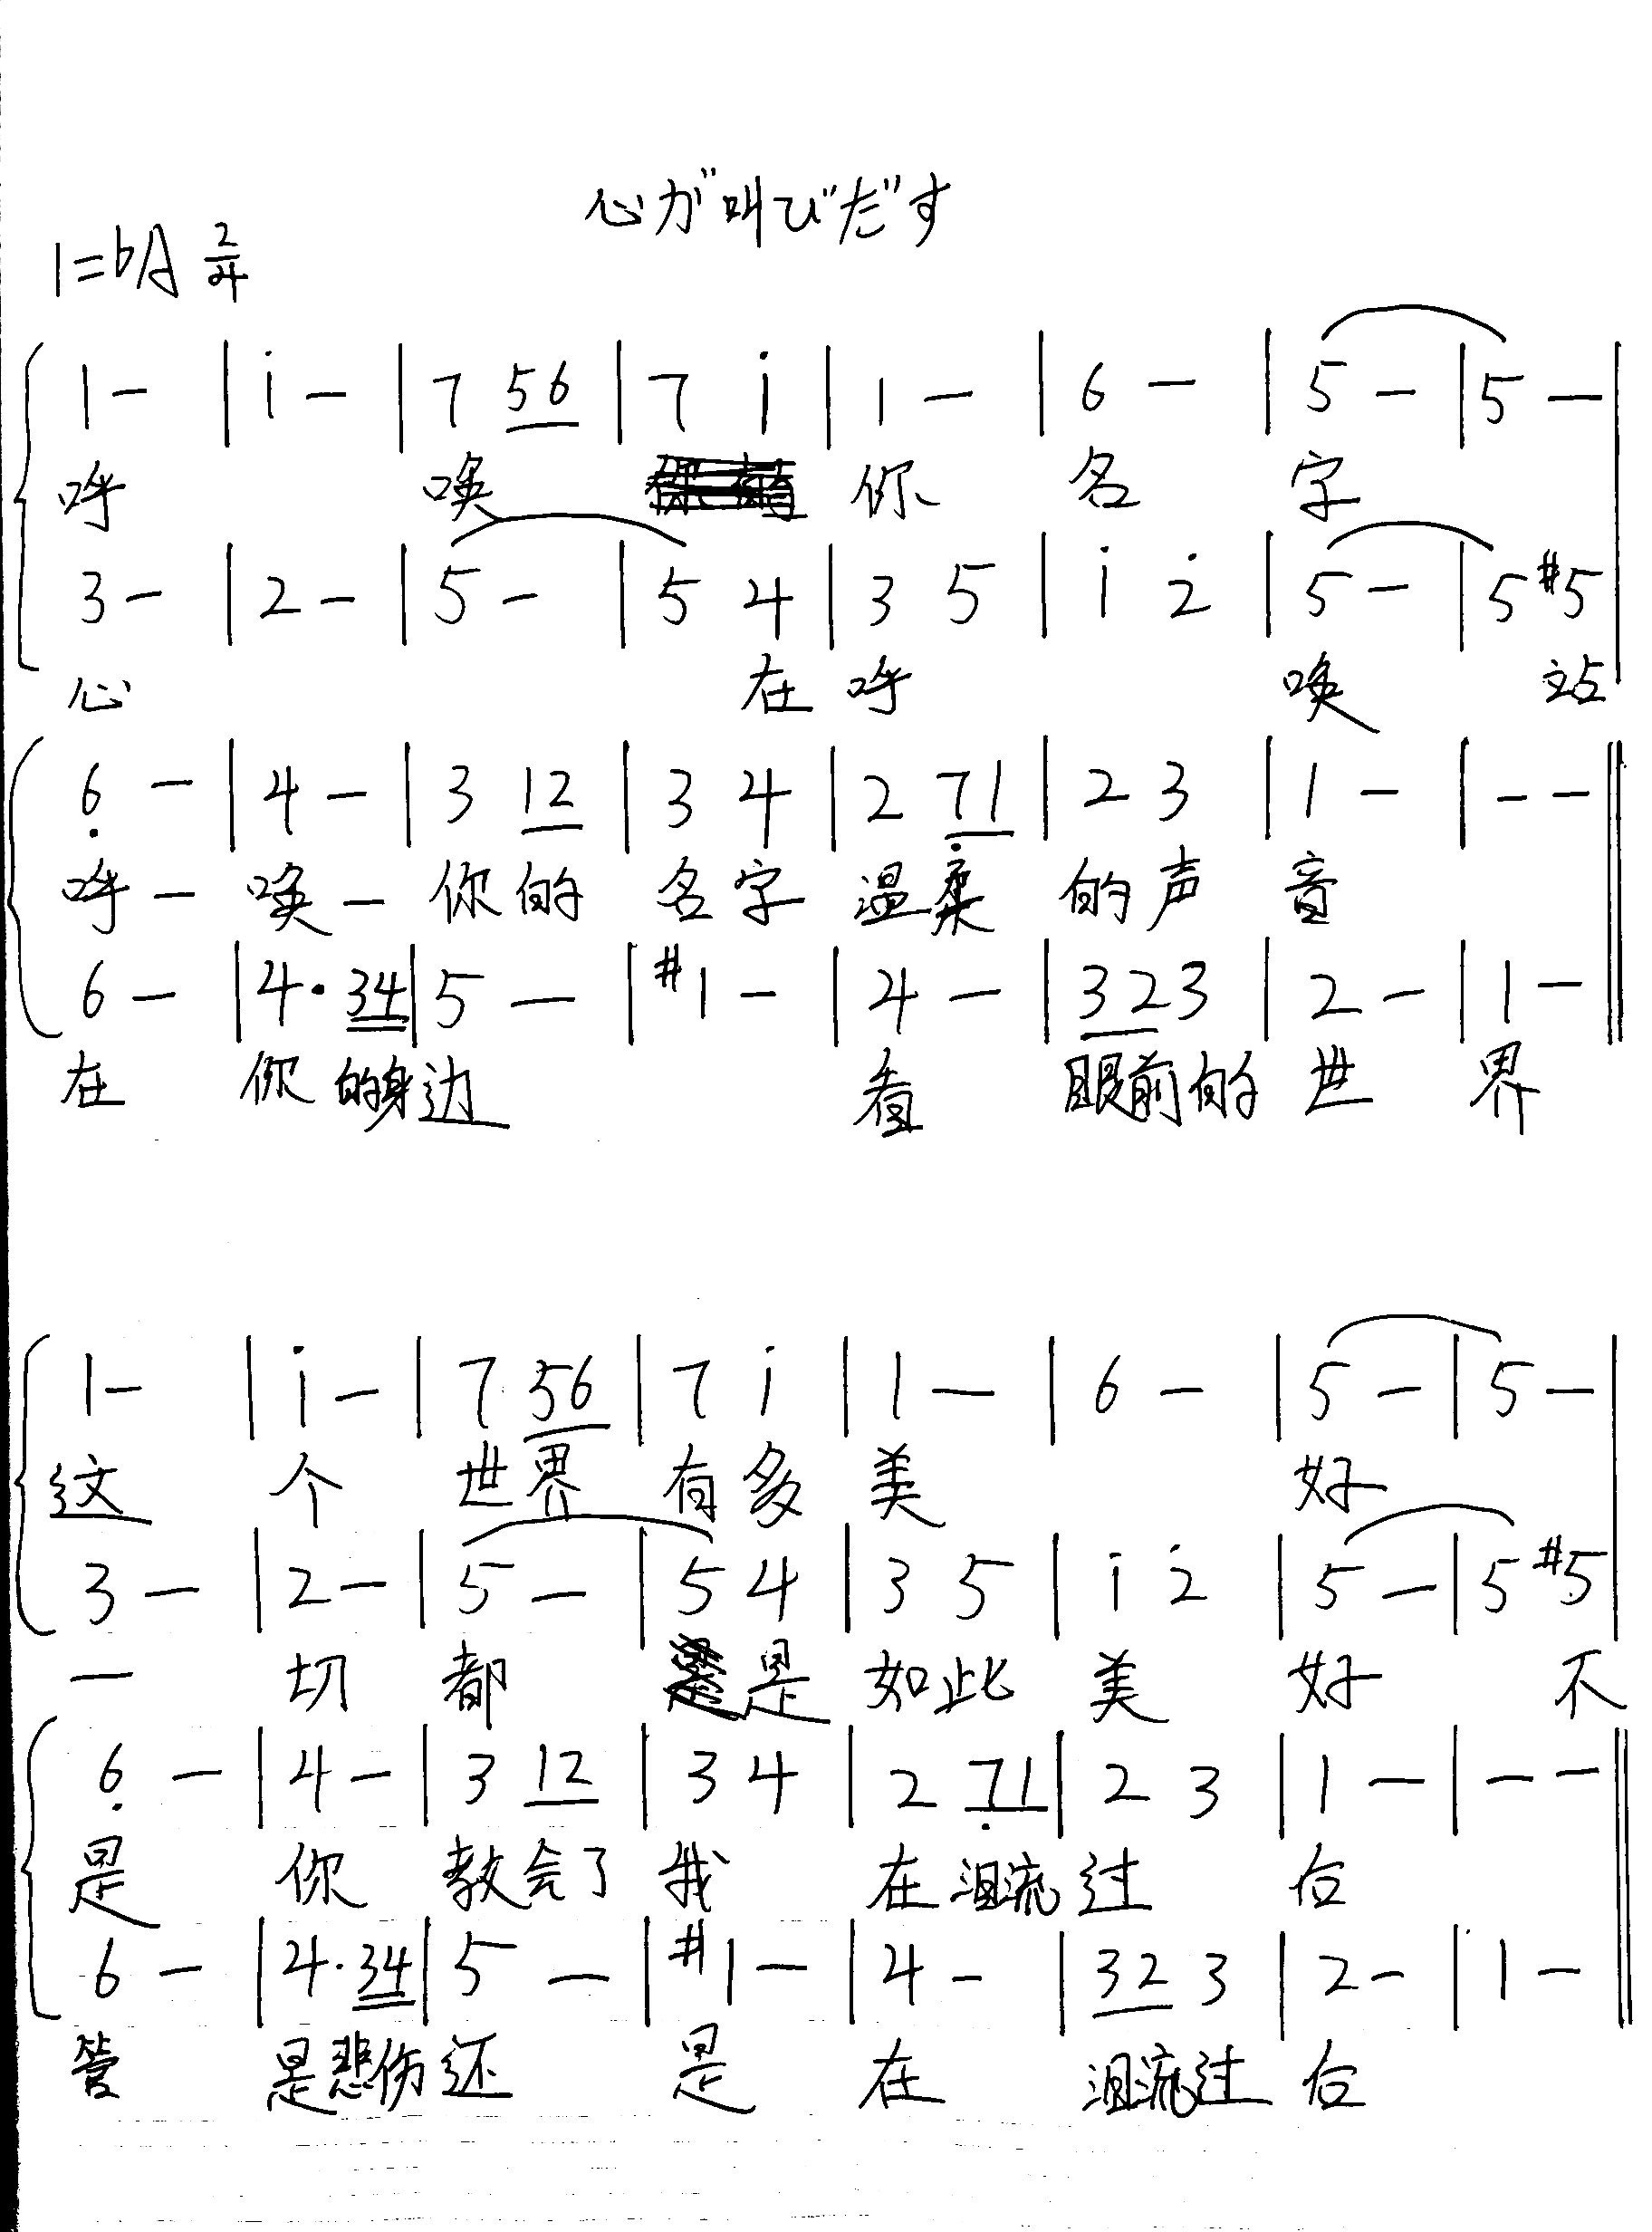 心が叫びだす
1=bA 2/4
1 - | i - | 7 56 | 7 i | 1 - | 6 - | 5 - | 5 - |
呼 唤 你 名 字
3 - | 2 - | 5 - | 5 4 | 3 5 | i 2̇ | 5 - | 5 #5
心 在 呼 唤 站
6̣ - | 4 - | 3 12 | 3 4 | 2 7̣1 | 2 3 | 1 - | - - ||
呼 - 唤 - 你 的 名 字 温 柔 的 声 音
6 - | 4· 34 | 5 - | #1 - | 4 - | 32 3 | 2 - | 1 - ||
在 你 的身 边 看 眼前 的 世 界
1 - | i - | 7 56 | 7 i | 1 - | 6 - | 5 - | 5 - |
这 个 世 界 有 多 美 好
3 - | 2 - | 5 - | 5 4 | 3 5 | i 2̇ | 5 - | 5 #5 |
一 切 都 是 如 此 美 好 不
6̣ - | 4 - | 3 12 | 3 4 | 2 7̣1 | 2 3 | 1 - | - - ||
是 你 教 会了 我 在 泪流 过 后
6 - | 4· 34 | 5 - | #1 - | 4 - | 32 3 | 2 - | 1 - ||
管 是 悲伤 还 是 在 泪流 过 后